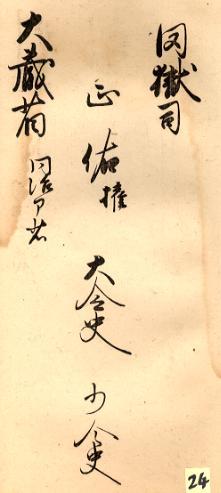 囚獄司
正 佑権 大令史 少令史
大蔵省 同治部省
24